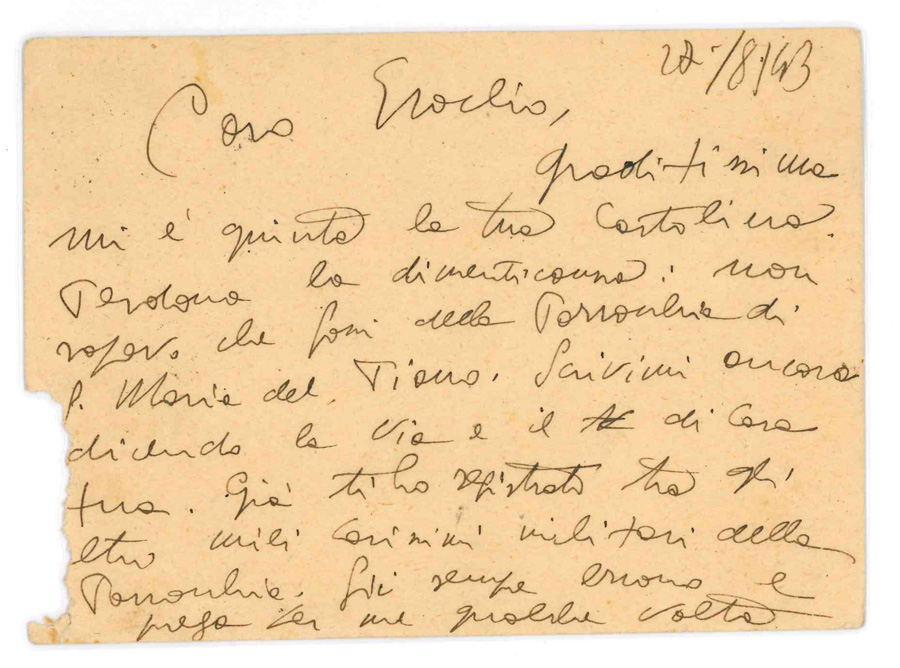 27-/8/43
Caro Eraclio,
graditissima
mi è giunta la tua cartolina.
Perdona la dimenticanza: non
sapevo che fossi della Parrocchia di
S. Maria del Piano. Scrivimi ancora
dicendo la Via e il N di Casa
tua. Già ti ho registrato tra gli
altri miei carissimi militari della
Parrocchia. Sii sempre buono e
prega per me qualche volta